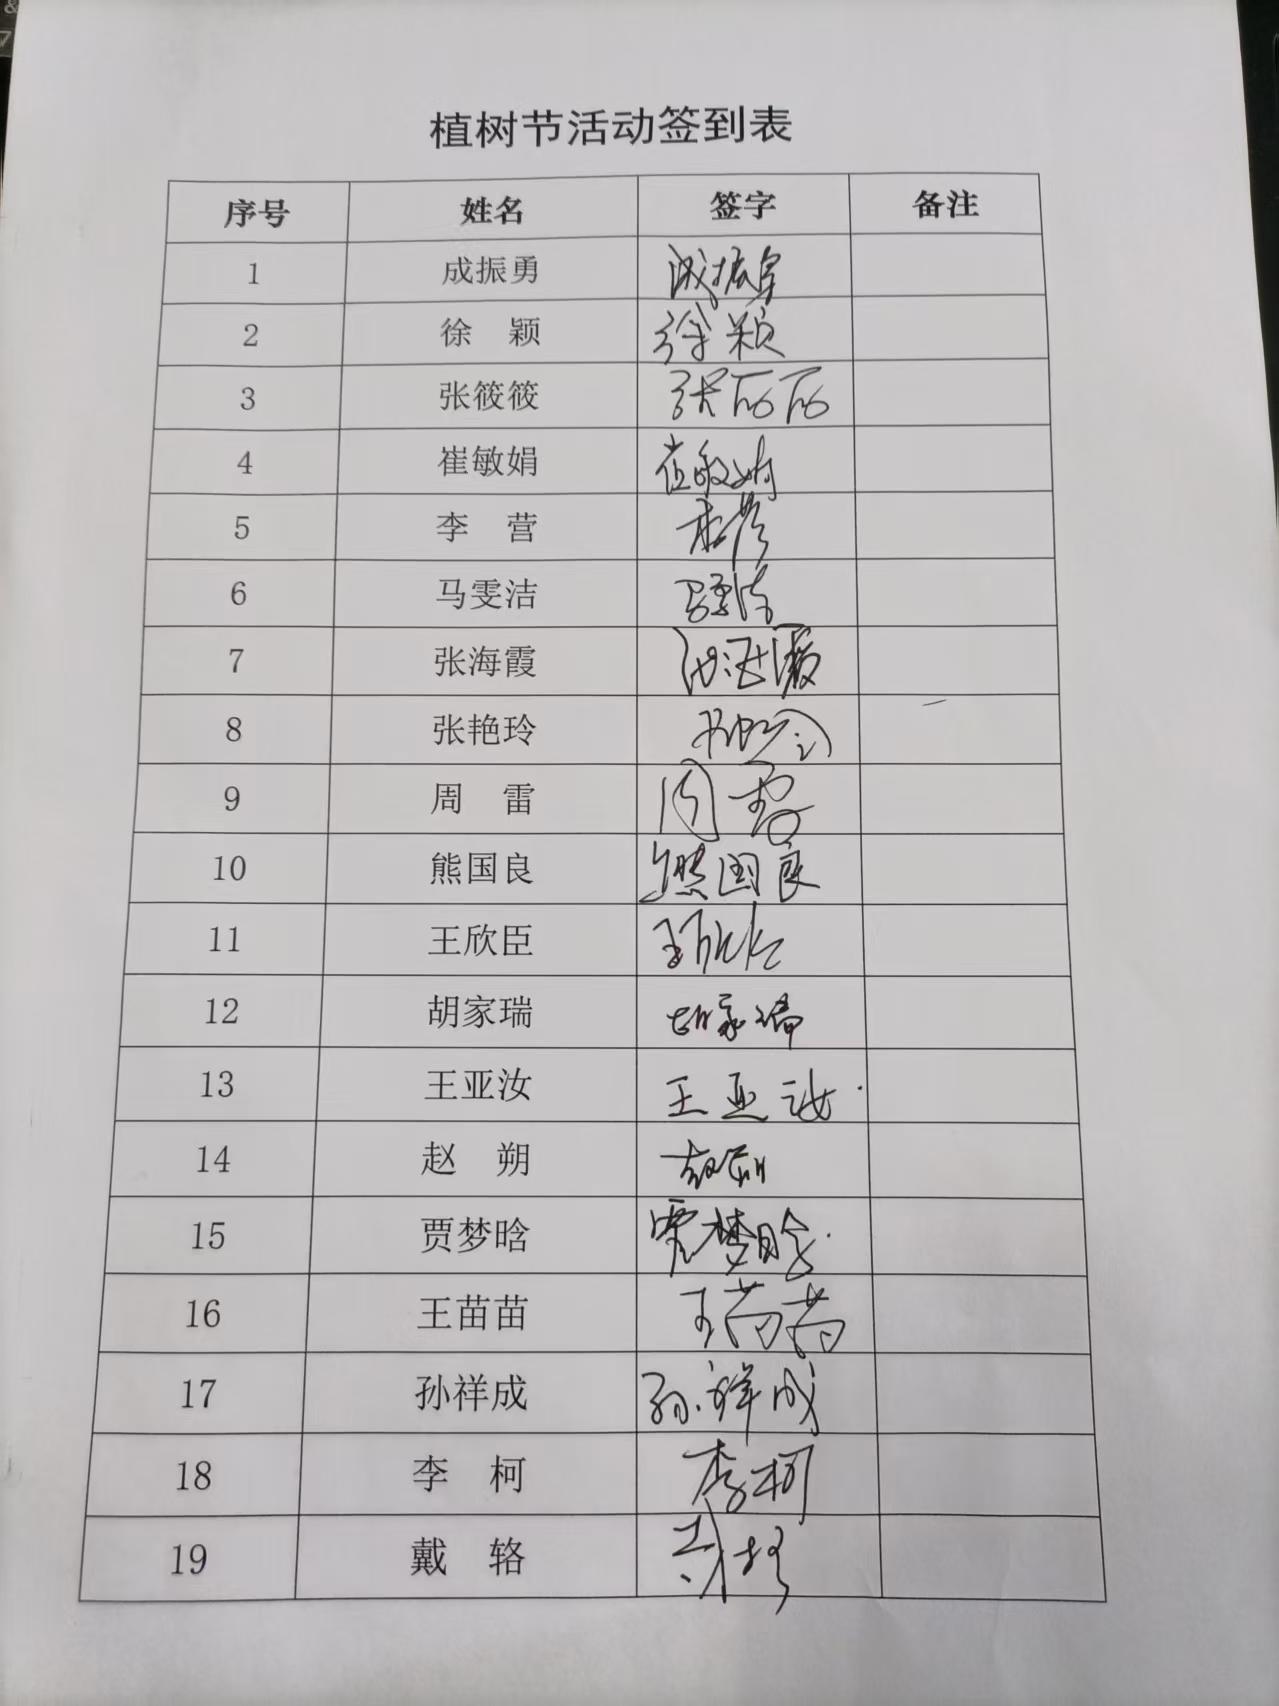 植树节活动签到表
序号 姓名 签字 备注
1 成振勇 成振勇
2 徐 颖 徐颖
3 张筱筱 张
4 崔敏娟 崔敏娟
5 李 营 李营
6 马雯洁 马雯洁
7 张海霞 张海霞
8 张艳玲
9 周 雷 周雷
10 熊国良 熊国良
11 王欣臣 王欣臣
12 胡家瑞 胡家瑞
13 王亚汝 王亚汝
14 赵 朔 赵朔
15 贾梦晗 贾梦晗
16 王苗苗 王苗苗
17 孙祥成 孙祥成
18 李 柯 李柯
19 戴 辂